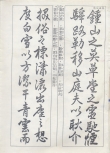 鍾山之英草堂之靈馳煙
驛路勒移山庭夫以耿介
拔俗之標瀟灑出塵之想
度白雪以方潔干青雲而